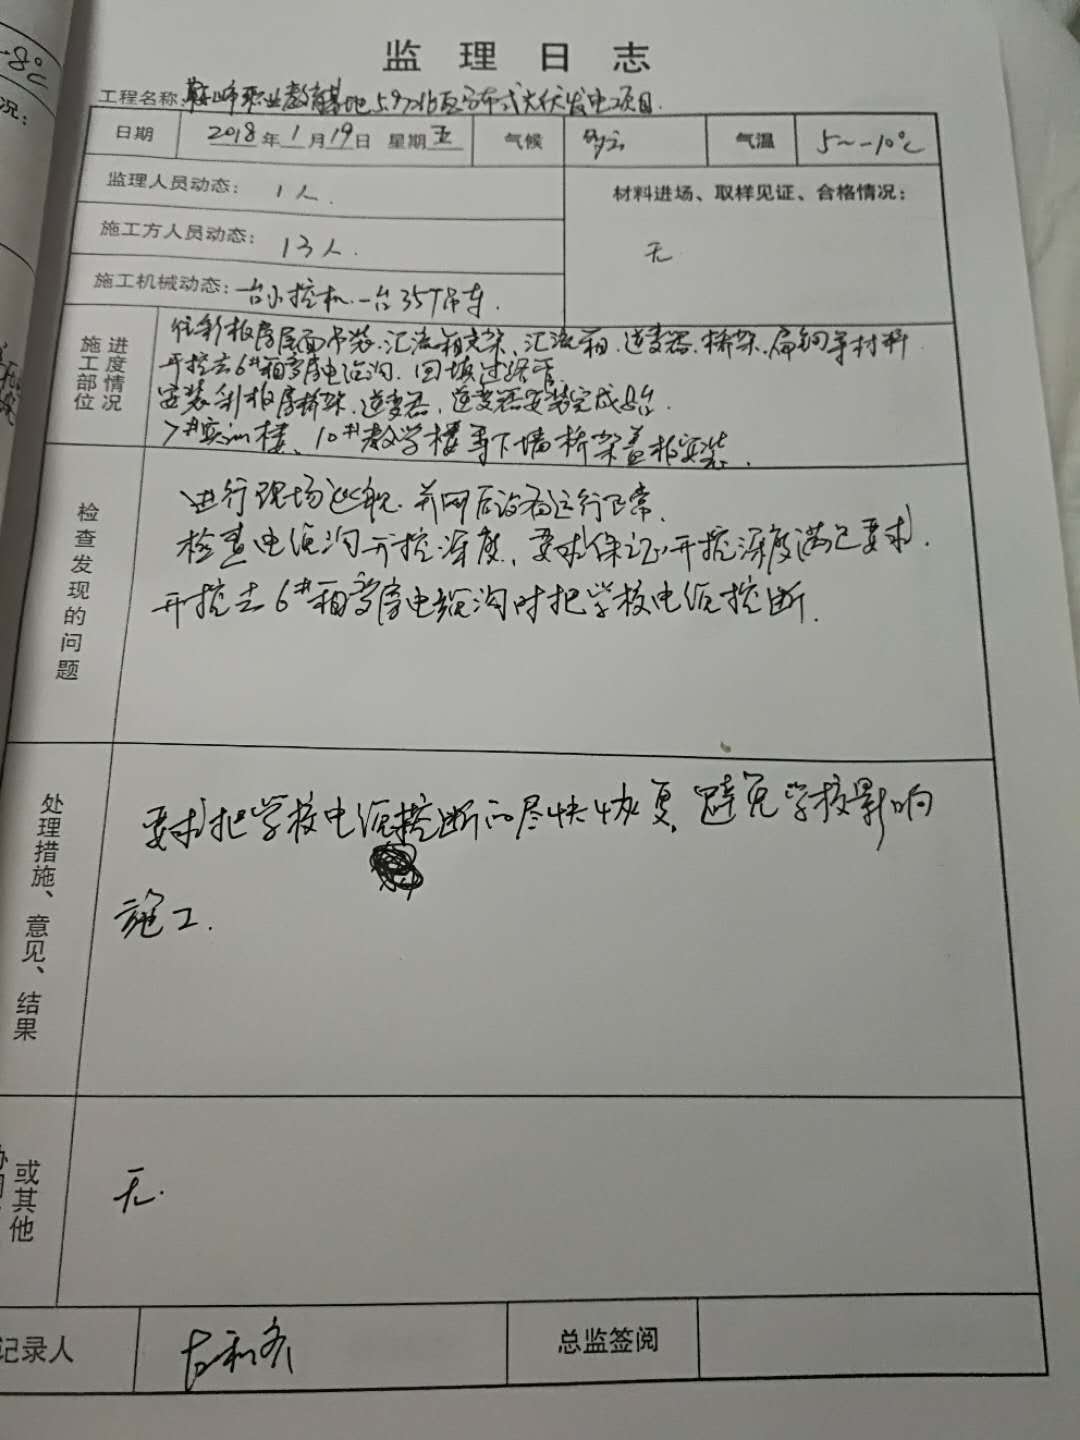 -8℃
况：
监理日志
工程名称：鞍山市职业教育基地5.9726瓦分布式光伏发电项目.
日期 2018年1月19日 星期五 气候 多云 气温 5~-10℃
监理人员动态： 1人.
材料进场、取样见证、合格情况：
无
施工方人员动态： 13人.
施工机械动态：一台小挖机.一台35T吊车.
施工部位进度情况
往彩板房屋面吊装.汇流箱支架、汇流箱.逆变器.桥架.扁钢等材料
开挖去6#箱变房电缆沟.回填过路管
安装彩板房桥架.逆变器.逆变器安装完成 台.
7#实训楼、10#教学楼等下墙桥架盖板安装.
检查发现的问题
进行现场巡视.并网后设备运行正常.
检查电缆沟开挖深度、要求保证开挖深度满足要求.
开挖去6#箱变房电缆沟时把学校电缆挖断.
处理措施、意见、结果
要求把学校电缆挖断的尽快恢复.避免学校影响
施工.
或其他
无.
记录人
总监签阅